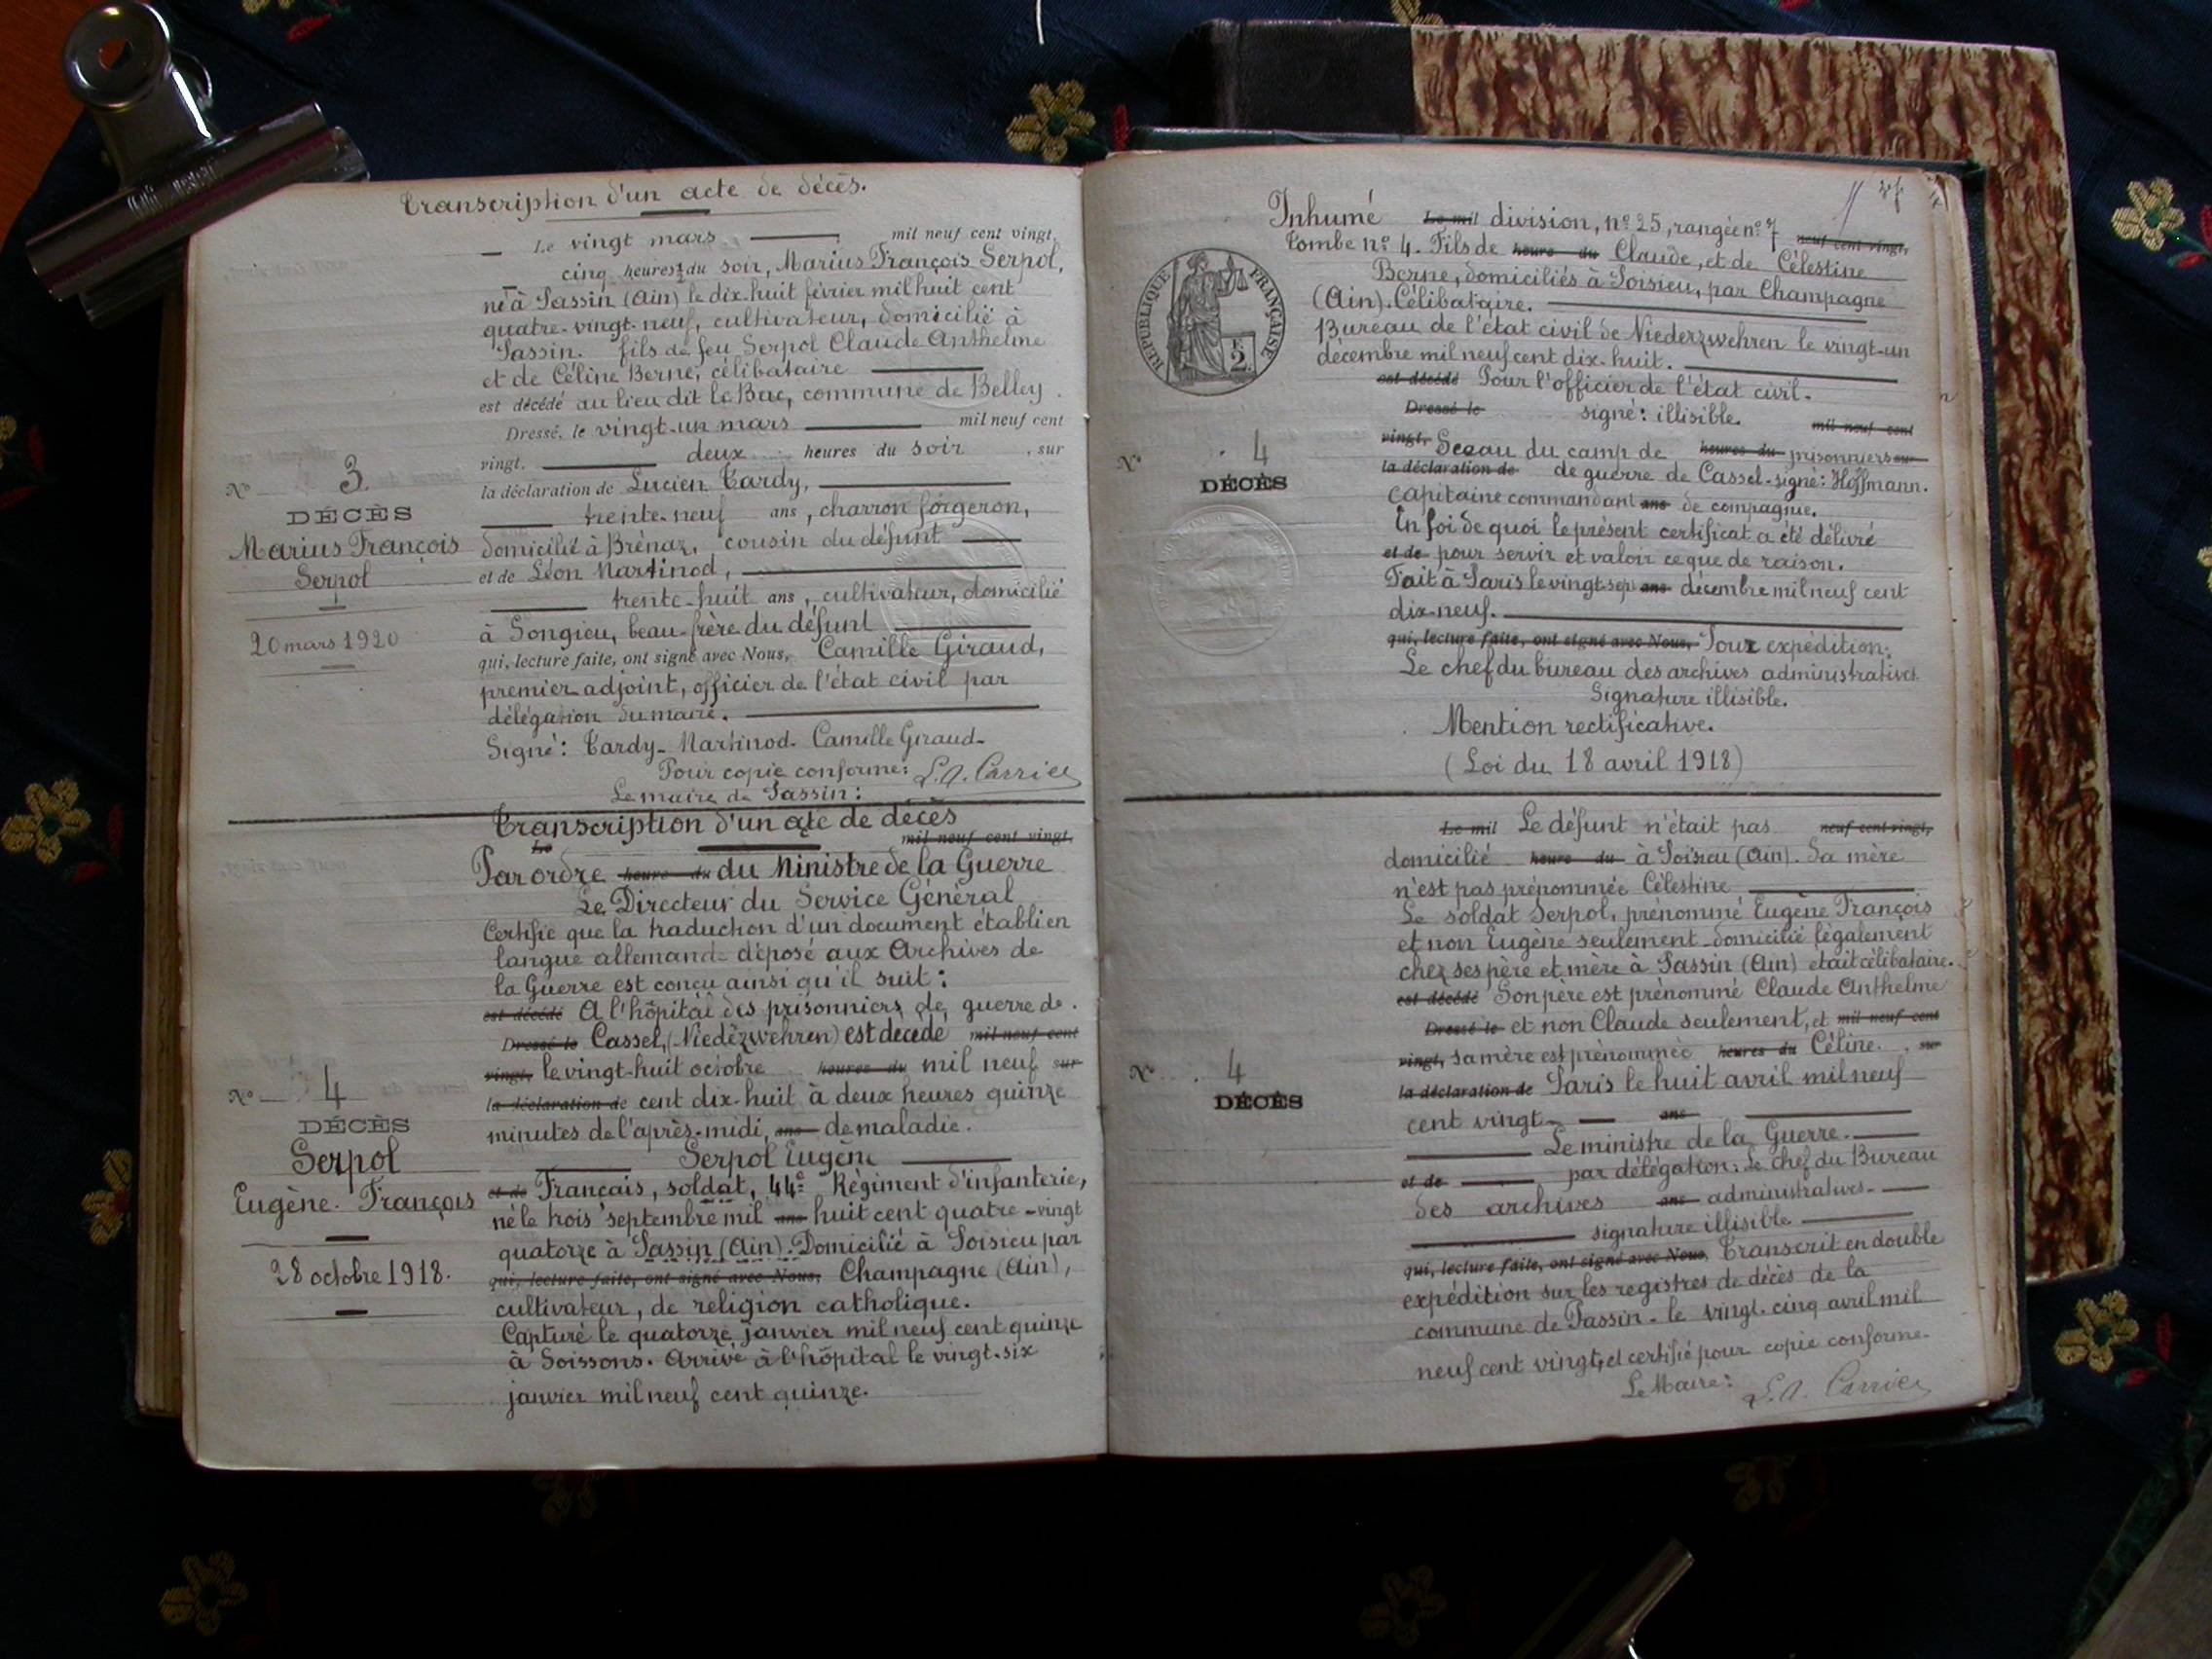 Transcription d'un acte de décès.
Le vingt mars mil neuf cent vingt,
cinq heures ½ du soir, Marius François Serpol,
né à Passin (Ain) le dix-huit février mil huit cent
quatre-vingt-neuf, cultivateur, domicilié à
Passin. fils de feu Serpol Claude Anthelme
et de Céline Berne, célibataire
est décédé au lieu dit le Bac, commune de Belley.
Dressé, le vingt-un mars mil neuf cent
vingt, deux heures du soir, sur
la déclaration de Lucien Tardy,
trente-neuf ans, charron forgeron,
domicilié à Brénaz, cousin du défunt
et de Léon Martinod,
trente-huit ans, cultivateur, domicilié
à Songieu, beau-frère du défunt
qui, lecture faite, ont signé avec Nous, Camille Giraud,
premier adjoint, officier de l'état civil par
délégation du maire.
Signé: Tardy - Martinod - Camille Giraud -
Pour copie conforme:
Le maire de Passin: L. A. Carrier
N° 3.
DÉCÈS
Marius François
Serpol
20 mars 1920
Transcription d'un acte de décès
Le mil neuf cent vingt,
Par ordre heure du du Ministre de la Guerre
Le Directeur du Service Général
Certifie que la traduction d'un document établi en
langue allemande déposé aux Archives de
la Guerre est conçu ainsi qu'il suit:
est décédé A l'hôpital des prisonniers de guerre de
Dressé le Cassel, (Niederzwehren) est décédé mil neuf cent
vingt, le vingt-huit octobre heures du mil neuf sur
la déclaration de cent dix-huit à deux heures quinze
minutes de l'après-midi, ans de maladie.
Serpol Eugène
et de Français, soldat, 44e Régiment d'infanterie,
né le trois septembre mil ans huit cent quatre-vingt
quatorze à Passin (Ain). Domicilié à Poisieu par
qui, lecture faite, ont signé avec Nous, Champagne (Ain),
cultivateur, de religion catholique.
Capturé le quatorze janvier mil neuf cent quinze
à Soissons. Arrivé à l'hôpital le vingt-six
janvier mil neuf cent quinze.
N° 4
DÉCÈS
Serpol
Eugène François
28 octobre 1918.
Inhumé Le mil division, n° 25, rangée n° 7 neuf cent vingt,
tombe n° 4. Fils de heure du Claude, et de Célestine
Berne, domiciliés à Poisieu, par Champagne
(Ain). Célibataire.
Bureau de l'état civil de Niederzwehren le vingt-un
décembre mil neuf cent dix-huit.
est décédé Pour l'officier de l'état civil.
Dressé le signé: illisible. mil neuf cent
vingt, Sceau du camp de heures du prisonniers sur
la déclaration de de guerre de Cassel - signé: Hoffmann.
capitaine commandant ans de compagnie.
En foi de quoi le présent certificat a été délivré
et de pour servir et valoir ce que de raison.
Fait à Paris le vingt-sept ans décembre mil neuf cent
dix-neuf.
qui, lecture faite, ont signé avec Nous, Pour expédition:
Le chef du bureau des archives administratives
Signature illisible.
Mention rectificative.
(Loi du 18 avril 1918)
RÉPUBLIQUE FRANÇAISE
2
N° 4
DÉCÈS
Le mil Le défunt n'était pas neuf cent vingt,
domicilié heure du à Poisieu (Ain). Sa mère
n'est pas prénommée Célestine
Le soldat Serpol, prénommé Eugène François
et non Eugène seulement - domicilié légalement
chez ses père et mère à Passin (Ain) était célibataire.
est décédé Son père est prénommé Claude Anthelme
Dressé le et non Claude seulement, et mil neuf cent
vingt, sa mère est prénommée heures du Céline. , sur
la déclaration de Paris le huit avril mil neuf
cent vingt - ans
Le ministre de la Guerre.
et de par délégation: Le chef du Bureau
des archives ans administratives -
signature illisible
qui, lecture faite, ont signé avec Nous, Transcrit en double
expédition sur les registres de décès de la
commune de Passin - le vingt-cinq avril mil
neuf cent vingt, et certifié pour copie conforme.
Le Maire: L. A. Carrier
N° 4
DÉCÈS